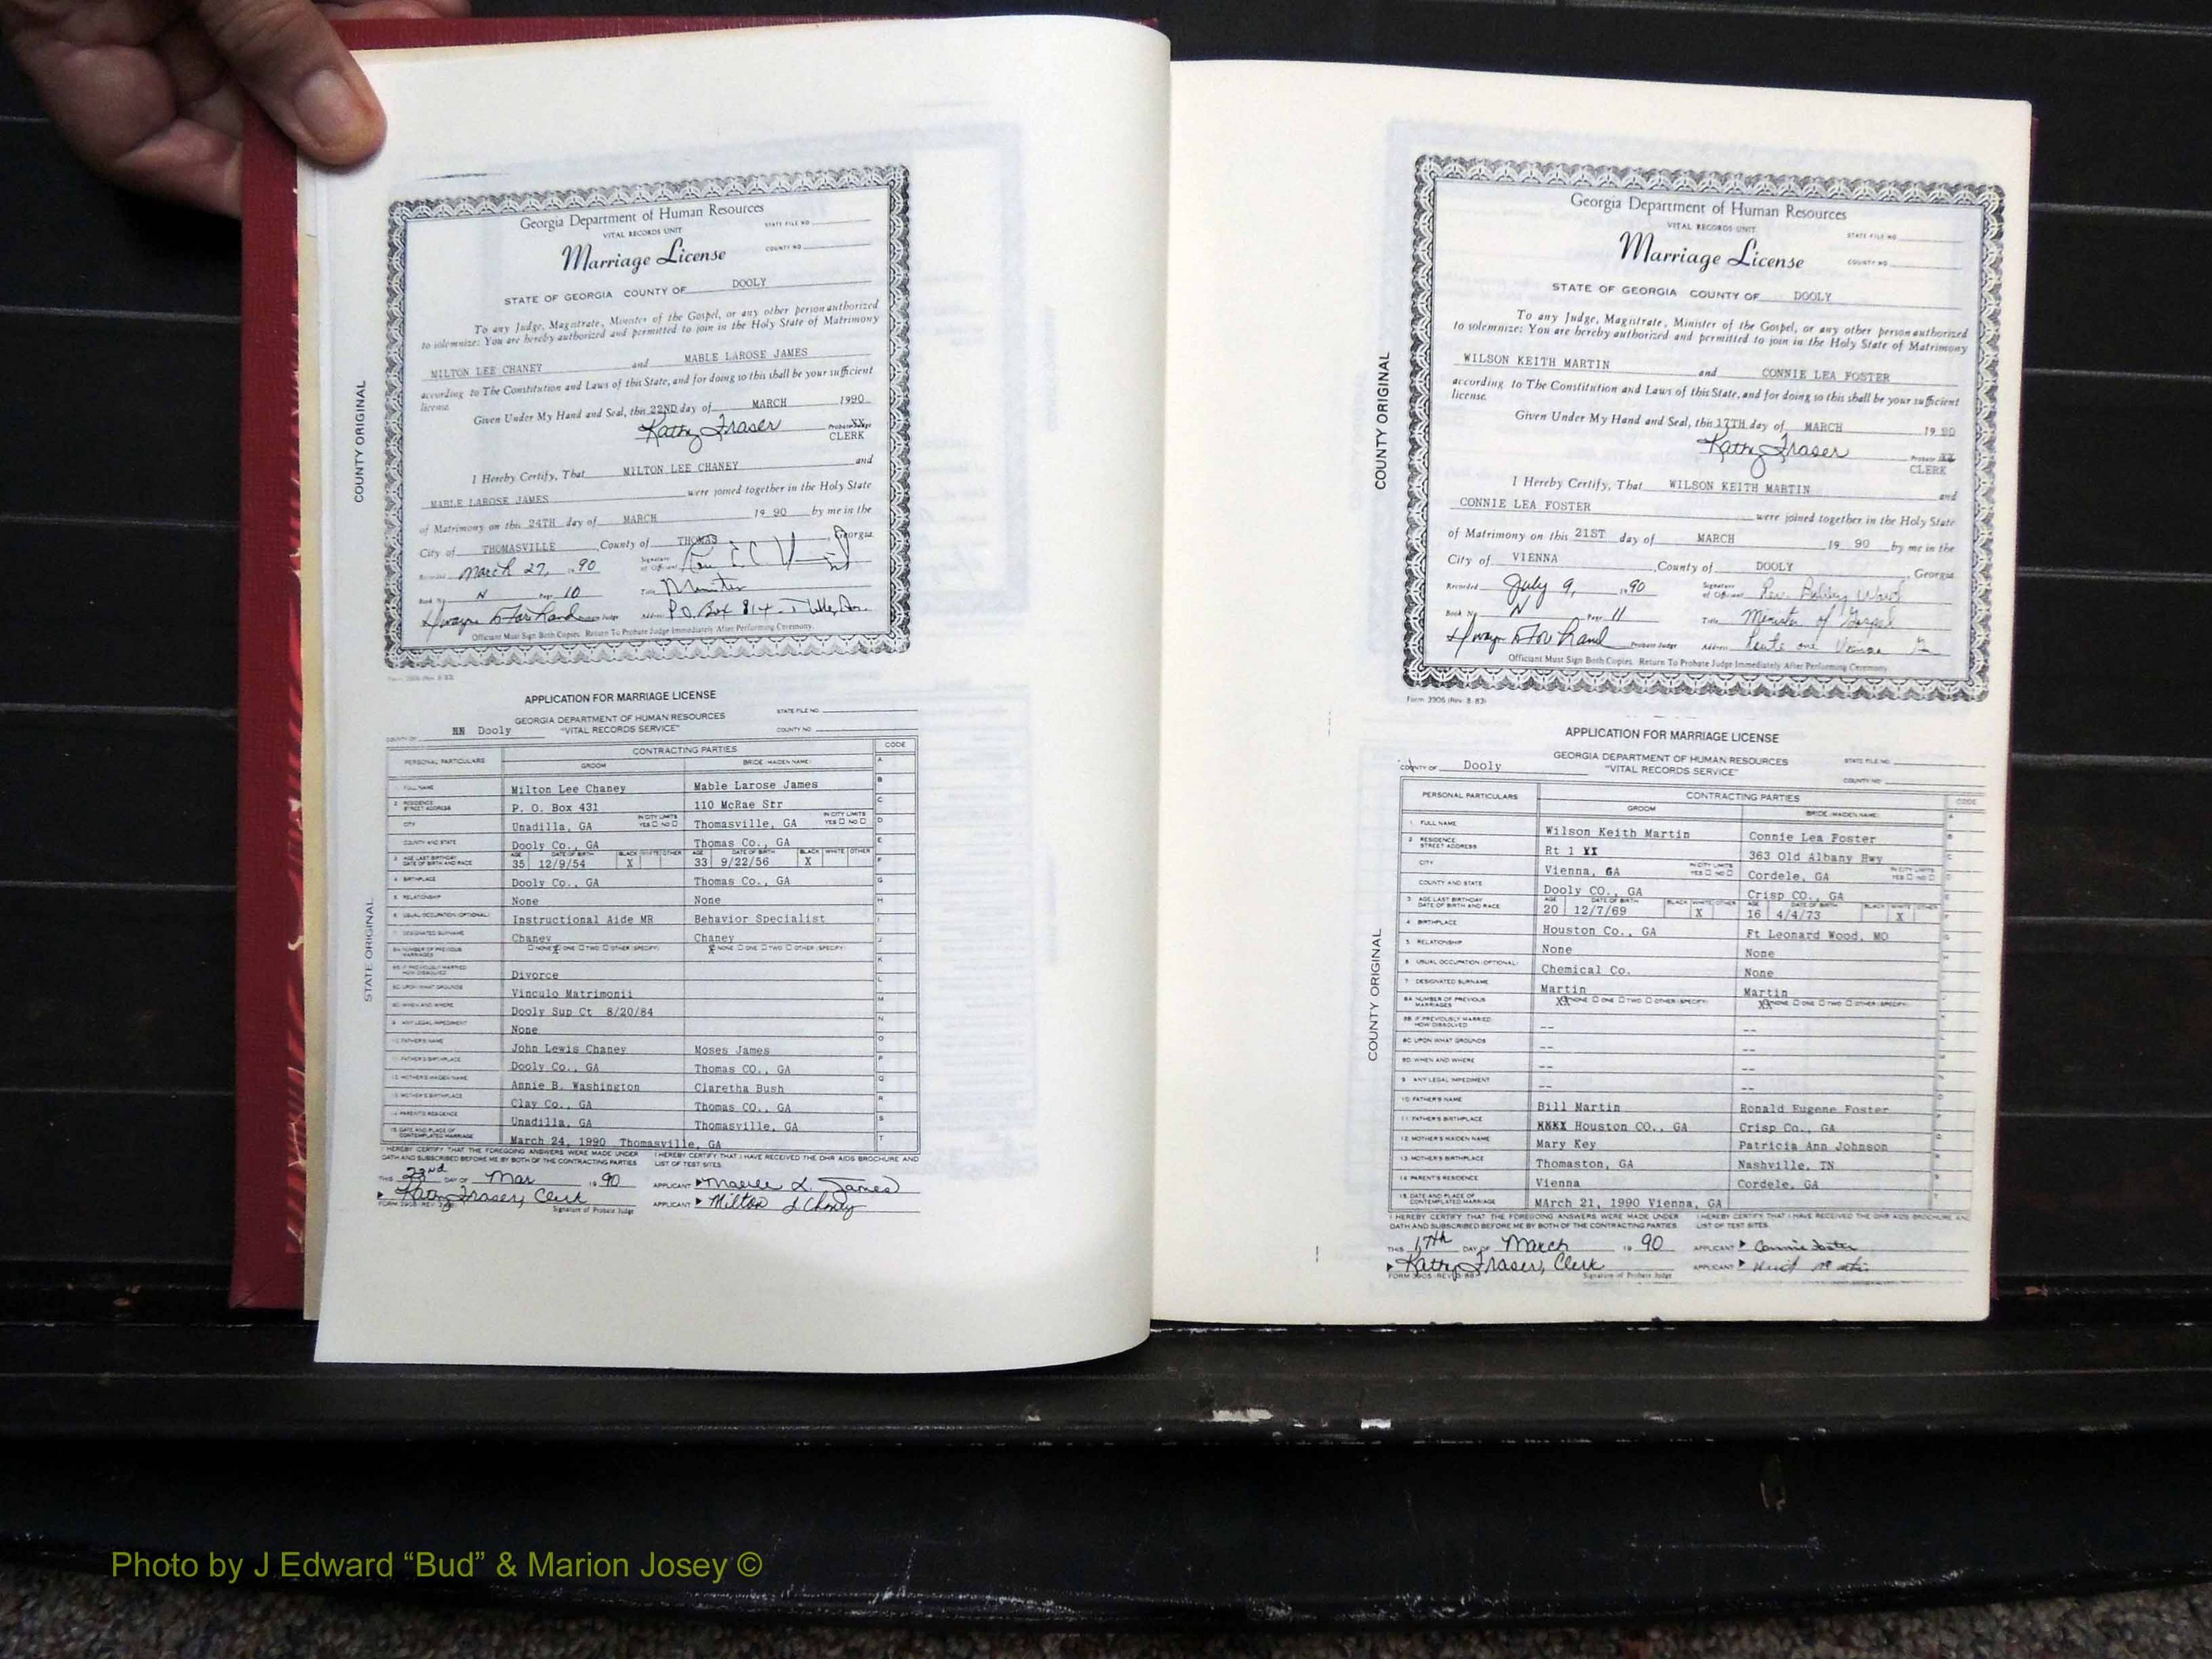 Georgia Department of Human Resources
VITAL RECORDS UNIT
STATE FILE NO
Marriage License
COUNTY NO
STATE OF GEORGIA COUNTY OF DOOLY
To any Judge, Magistrate, Minister of the Gospel, or any other person authorized
to solemnize: You are hereby authorized and permitted to join in the Holy State of Matrimony
MILTON LEE CHANEY and MABLE LAROSE JAMES
according to The Constitution and Laws of this State, and for doing so this shall be your sufficient
license.
Given Under My Hand and Seal, this 22ND day of MARCH 1990
Kathy Fraser Probate Judge
CLERK
I Hereby Certify, That MILTON LEE CHANEY and
MABLE LAROSE JAMES were joined together in the Holy State
of Matrimony on this 24TH day of MARCH 19 90 by me in the
City of THOMASVILLE County of THOMAS, Georgia
Recorded March 27, 1990 Signature of Official
Book No N Page 10 Title Minister
Judge Address P.O. Box 814
Officiant Must Sign Both Copies. Return To Probate Judge Immediately After Performing Ceremony.
Form 3906 (Rev. 8-83)
COUNTY ORIGINAL
APPLICATION FOR MARRIAGE LICENSE
GEORGIA DEPARTMENT OF HUMAN RESOURCES STATE FILE NO.
COUNTY OF Dooly "VITAL RECORDS SERVICE" COUNTY NO.
PERSONAL PARTICULARS CONTRACTING PARTIES CODE
GROOM BRIDE (MAIDEN NAME) A
1. FULL NAME Milton Lee Chaney Mable Larose James B
2. RESIDENCE STREET ADDRESS P. O. Box 431 110 McRae Str C
CITY Unadilla, GA IN CITY LIMITS YES NO Thomasville, GA IN CITY LIMITS YES NO D
COUNTY AND STATE Dooly Co., GA Thomas Co., GA E
3. AGE LAST BIRTHDAY DATE OF BIRTH AND RACE AGE 35 DATE OF BIRTH 12/9/54 BLACK X WHITE OTHER AGE 33 DATE OF BIRTH 9/22/56 BLACK X WHITE OTHER F
4. BIRTHPLACE Dooly Co., GA Thomas Co., GA G
5. RELATIONSHIP None None H
6. USUAL OCCUPATION (OPTIONAL) Instructional Aide MR Behavior Specialist I
7. DESIGNATED SURNAME Chaney Chaney J
8A. NUMBER OF PREVIOUS MARRIAGES NONE ONE TWO OTHER (SPECIFY) NONE ONE TWO OTHER (SPECIFY) K
8B. IF PREVIOUSLY MARRIED HOW DISSOLVED Divorce L
8C. UPON WHAT GROUNDS Vinculo Matrimonii M
8D. WHEN AND WHERE Dooly Sup Ct 8/20/84 N
9. ANY LEGAL IMPEDIMENT None O
10. FATHER'S NAME John Lewis Chaney Moses James P
11. FATHER'S BIRTHPLACE Dooly Co., GA Thomas CO., GA Q
12. MOTHER'S MAIDEN NAME Annie B. Washington Claretha Bush R
13. MOTHER'S BIRTHPLACE Clay Co., GA Thomas CO., GA S
14. PARENT'S RESIDENCE Unadilla, GA Thomasville, GA T
15. DATE AND PLACE OF CONTEMPLATED MARRIAGE March 24, 1990 Thomasville, GA
I HEREBY CERTIFY THAT THE FOREGOING ANSWERS WERE MADE UNDER OATH AND SUBSCRIBED BEFORE ME BY BOTH OF THE CONTRACTING PARTIES
I HEREBY CERTIFY THAT I HAVE RECEIVED THE DHR AIDS BROCHURE AND LIST OF TEST SITES.
THIS DAY OF Mar 19 90 APPLICANT
Kathy Fraser, Clerk APPLICANT Milton L Chaney
Signature of Probate Judge
STATE ORIGINAL
Georgia Department of Human Resources
VITAL RECORDS UNIT
STATE FILE NO
Marriage License
COUNTY NO
STATE OF GEORGIA COUNTY OF DOOLY
To any Judge, Magistrate, Minister of the Gospel, or any other person authorized
to solemnize: You are hereby authorized and permitted to join in the Holy State of Matrimony
WILSON KEITH MARTIN and CONNIE LEA FOSTER
according to The Constitution and Laws of this State, and for doing so this shall be your sufficient
license.
Given Under My Hand and Seal, this 17TH day of MARCH 19 90
Kathy Fraser Probate
CLERK
I Hereby Certify, That WILSON KEITH MARTIN and
CONNIE LEA FOSTER were joined together in the Holy State
of Matrimony on this 21ST day of MARCH 19 90 by me in the
City of VIENNA, County of DOOLY, Georgia
Recorded July 9, 1990 Signature of Official Rev. Ashley Ward
Book No N Page 11 Title Minister of Gospel
Probate Judge Address Route one Vienna Ga
Officiant Must Sign Both Copies. Return To Probate Judge Immediately After Performing Ceremony
Form 3906 (Rev. 8-83)
COUNTY ORIGINAL
APPLICATION FOR MARRIAGE LICENSE
GEORGIA DEPARTMENT OF HUMAN RESOURCES STATE FILE NO.
COUNTY OF Dooly "VITAL RECORDS SERVICE" COUNTY NO.
PERSONAL PARTICULARS CONTRACTING PARTIES CODE
GROOM BRIDE (MAIDEN NAME)
1. FULL NAME Wilson Keith Martin Connie Lea Foster
2. RESIDENCE STREET ADDRESS Rt 1 XX 363 Old Albany Hwy
CITY Vienna, GA IN CITY LIMITS YES NO Cordele, GA IN CITY LIMITS YES NO
COUNTY AND STATE Dooly CO., GA Crisp CO., GA
3. AGE LAST BIRTHDAY DATE OF BIRTH AND RACE AGE 20 DATE OF BIRTH 12/7/69 BLACK WHITE X OTHER AGE 16 DATE OF BIRTH 4/4/73 BLACK WHITE X OTHER
4. BIRTHPLACE Houston Co., GA Ft Leonard Wood, MO
5. RELATIONSHIP None None
6. USUAL OCCUPATION (OPTIONAL) Chemical Co. None
7. DESIGNATED SURNAME Martin Martin
8A. NUMBER OF PREVIOUS MARRIAGES XX NONE ONE TWO OTHER (SPECIFY) XX NONE ONE TWO OTHER (SPECIFY)
8B. IF PREVIOUSLY MARRIED HOW DISSOLVED -- --
8C. UPON WHAT GROUNDS -- --
8D. WHEN AND WHERE -- --
9. ANY LEGAL IMPEDIMENT -- --
10. FATHER'S NAME Bill Martin Ronald Eugene Foster
11. FATHER'S BIRTHPLACE XXXX Houston CO., GA Crisp Co., GA
12. MOTHER'S MAIDEN NAME Mary Key Patricia Ann Johnson
13. MOTHER'S BIRTHPLACE Thomaston, GA Nashville, TN
14. PARENT'S RESIDENCE Vienna Cordele, GA
15. DATE AND PLACE OF CONTEMPLATED MARRIAGE MArch 21, 1990 Vienna, GA
I HEREBY CERTIFY THAT THE FOREGOING ANSWERS WERE MADE UNDER OATH AND SUBSCRIBED BEFORE ME BY BOTH OF THE CONTRACTING PARTIES
I HEREBY CERTIFY THAT I HAVE RECEIVED THE DHR AIDS BROCHURE AND LIST OF TEST SITES
THIS 17th DAY OF March 19 90 APPLICANT Connie Foster
Kathy Fraser, Clerk APPLICANT
Signature of Probate Judge
COUNTY ORIGINAL
Photo by J Edward “Bud” & Marion Josey ©